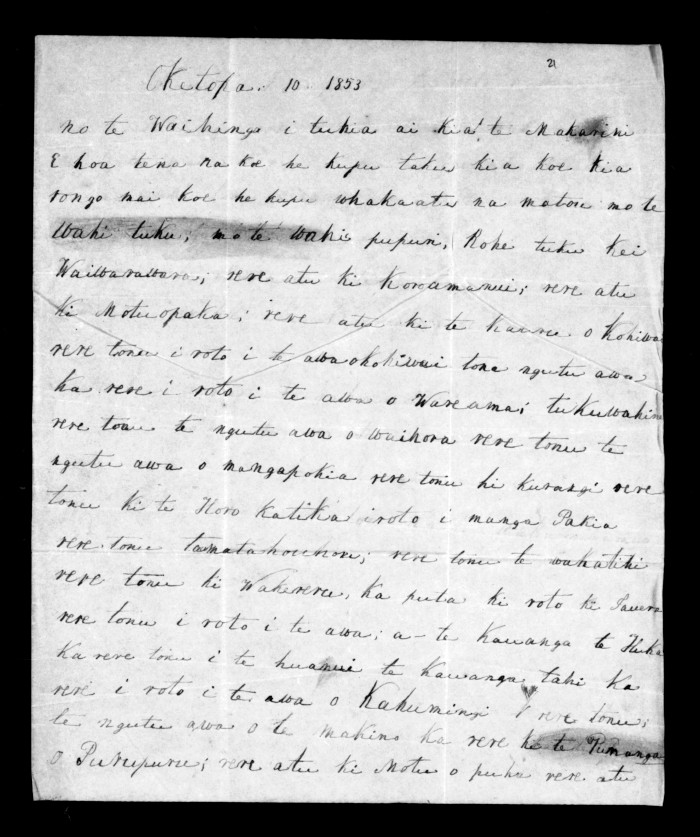 21
Oketopa. 10 1853
no te Waihinga i tuhia ai kia te Makarini
E hoa tena na koe he kupu taku kia koe kia
rongo mai koe he kupu whakaatu na matou mo te
wahi tuku, mo te wahi pupuri, Rohe tuku kei
Waiwarawara; rere atu ki Koroamanui; rere atu
ki Motuopaka; rere atu ki te kauru o Kohiwai
rere tonu i roto i te awa okohiwai tona ngutu awa
ka rere i roto i te awa o Wareama; tukuwahine
rere tonu te ngutu awa o waihora rere tonu te
ngutu awa o mangapokia rere tonu ki kurangi rere
tonu ki te Horo Katika iroto i manga Pakia
rere tonu tamatahouhou; rere tonu te wakatiki
rere tonu ki Wakereru, ka puta ki roto ki
rere tonu i roto i te awa; a - te kauanga te Huka
Ka rere tonu i te huanui te kauanga tahi ka
rere i roto i te awa o Kahumingi rere tonu;
te ngutu awa o te makino ka rere ki te Pumanga
o Purupuru; rere atu ki Motu o puha rere atu